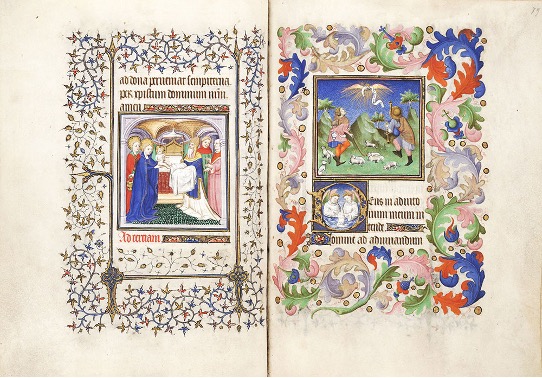 ad dona perueniat sempiterna
per xpistum dominum
amen
Ad terciam
Deus in adiuto
rium meum in
tende
Domine ad adiuuandum